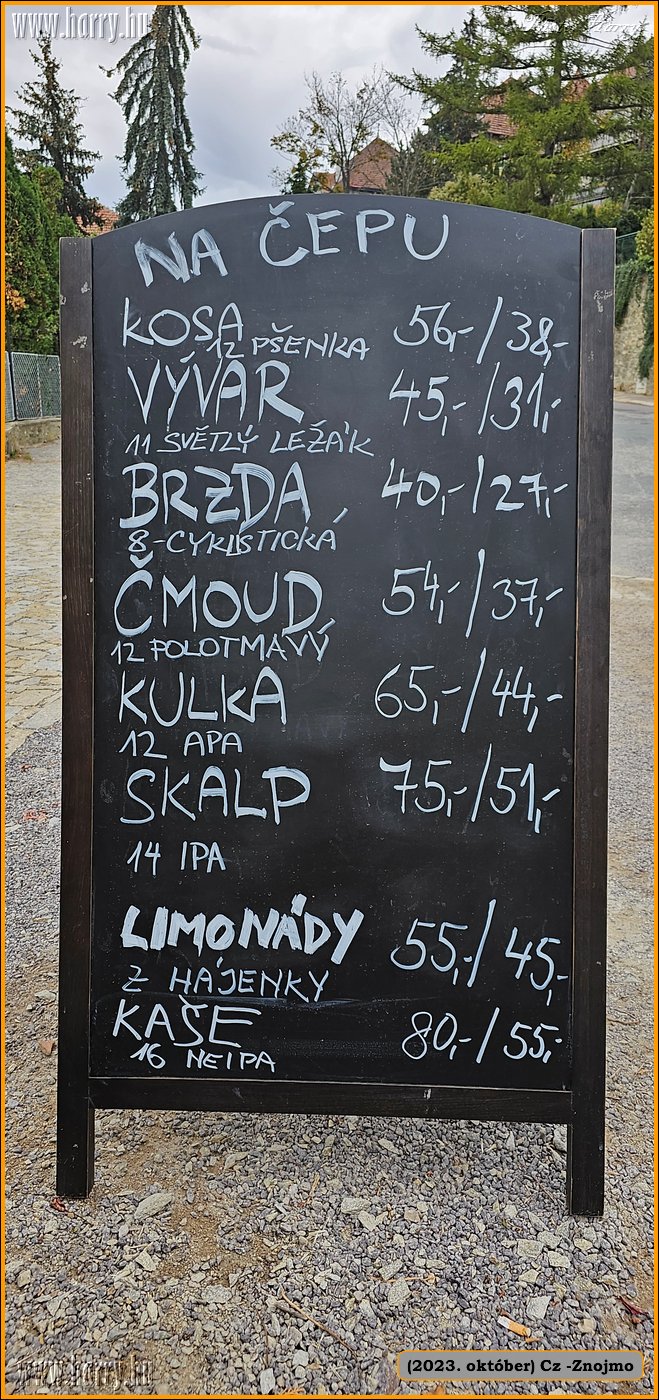 www.harry.hu
NA ČEPU
KOSA 56,-/38,-
12 PŠENKA
VÝVAR 45,-/31,-
11 SVĚTLÝ LEŽÁK
BRZDA 40,-/27,-
8-CYKLISTICKÁ
ČMOUD 54,-/37,-
12 POLOTMAVÝ
KULKA 65,-/44,-
12 APA
SKALP 75,-/51,-
14 IPA
LIMONÁDY 55,-/45,-
Z HÁJENKY
KAŠE 80,-/55,-
16 NEIPA
www.harry.hu
(2023. október) Cz -Znojmo